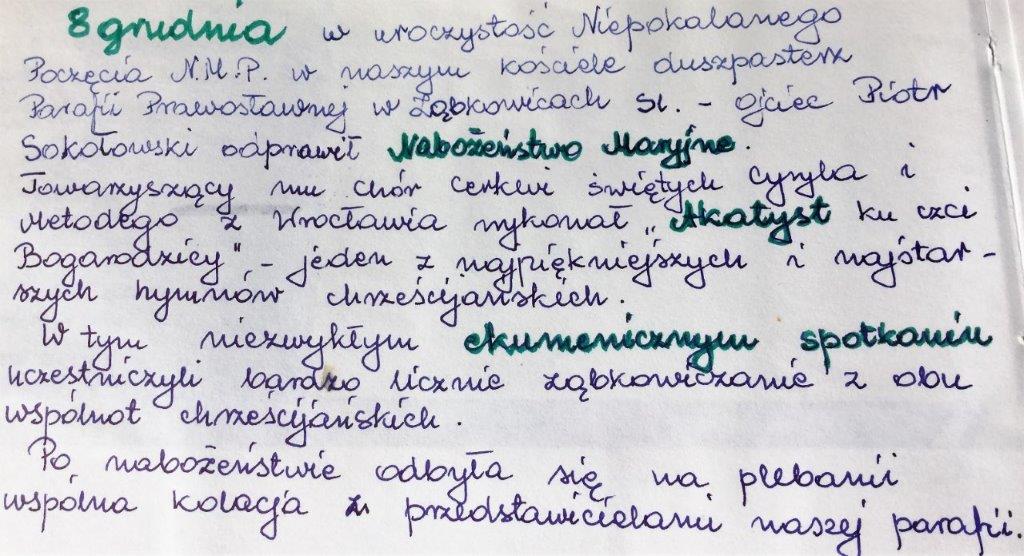 8 grudnia w uroczystość Niepokalanego
Poczęcia N.M.P. w naszym kościele duszpasterz
Parafii Prawosławnej w Ząbkowicach Śl. - ojciec Piotr
Sokołowski odprawił Nabożeństwo Maryjne.
Towarzyszący mu chór cerkwi świętych Cyryla i
Metodego z Wrocławia wykonał „Akatyst ku czci
Bogarodzicy" - jeden z najpiękniejszych i najstar-
szych hymnów chrześcijańskich.
W tym niezwykłym ekumenicznym spotkaniu
uczestniczyli bardzo licznie ząbkowiczanie z obu
wspólnot chrześcijańskich.
Po nabożeństwie odbyła się na plebanii
wspólna kolacja z przedstawicielami naszej parafii.